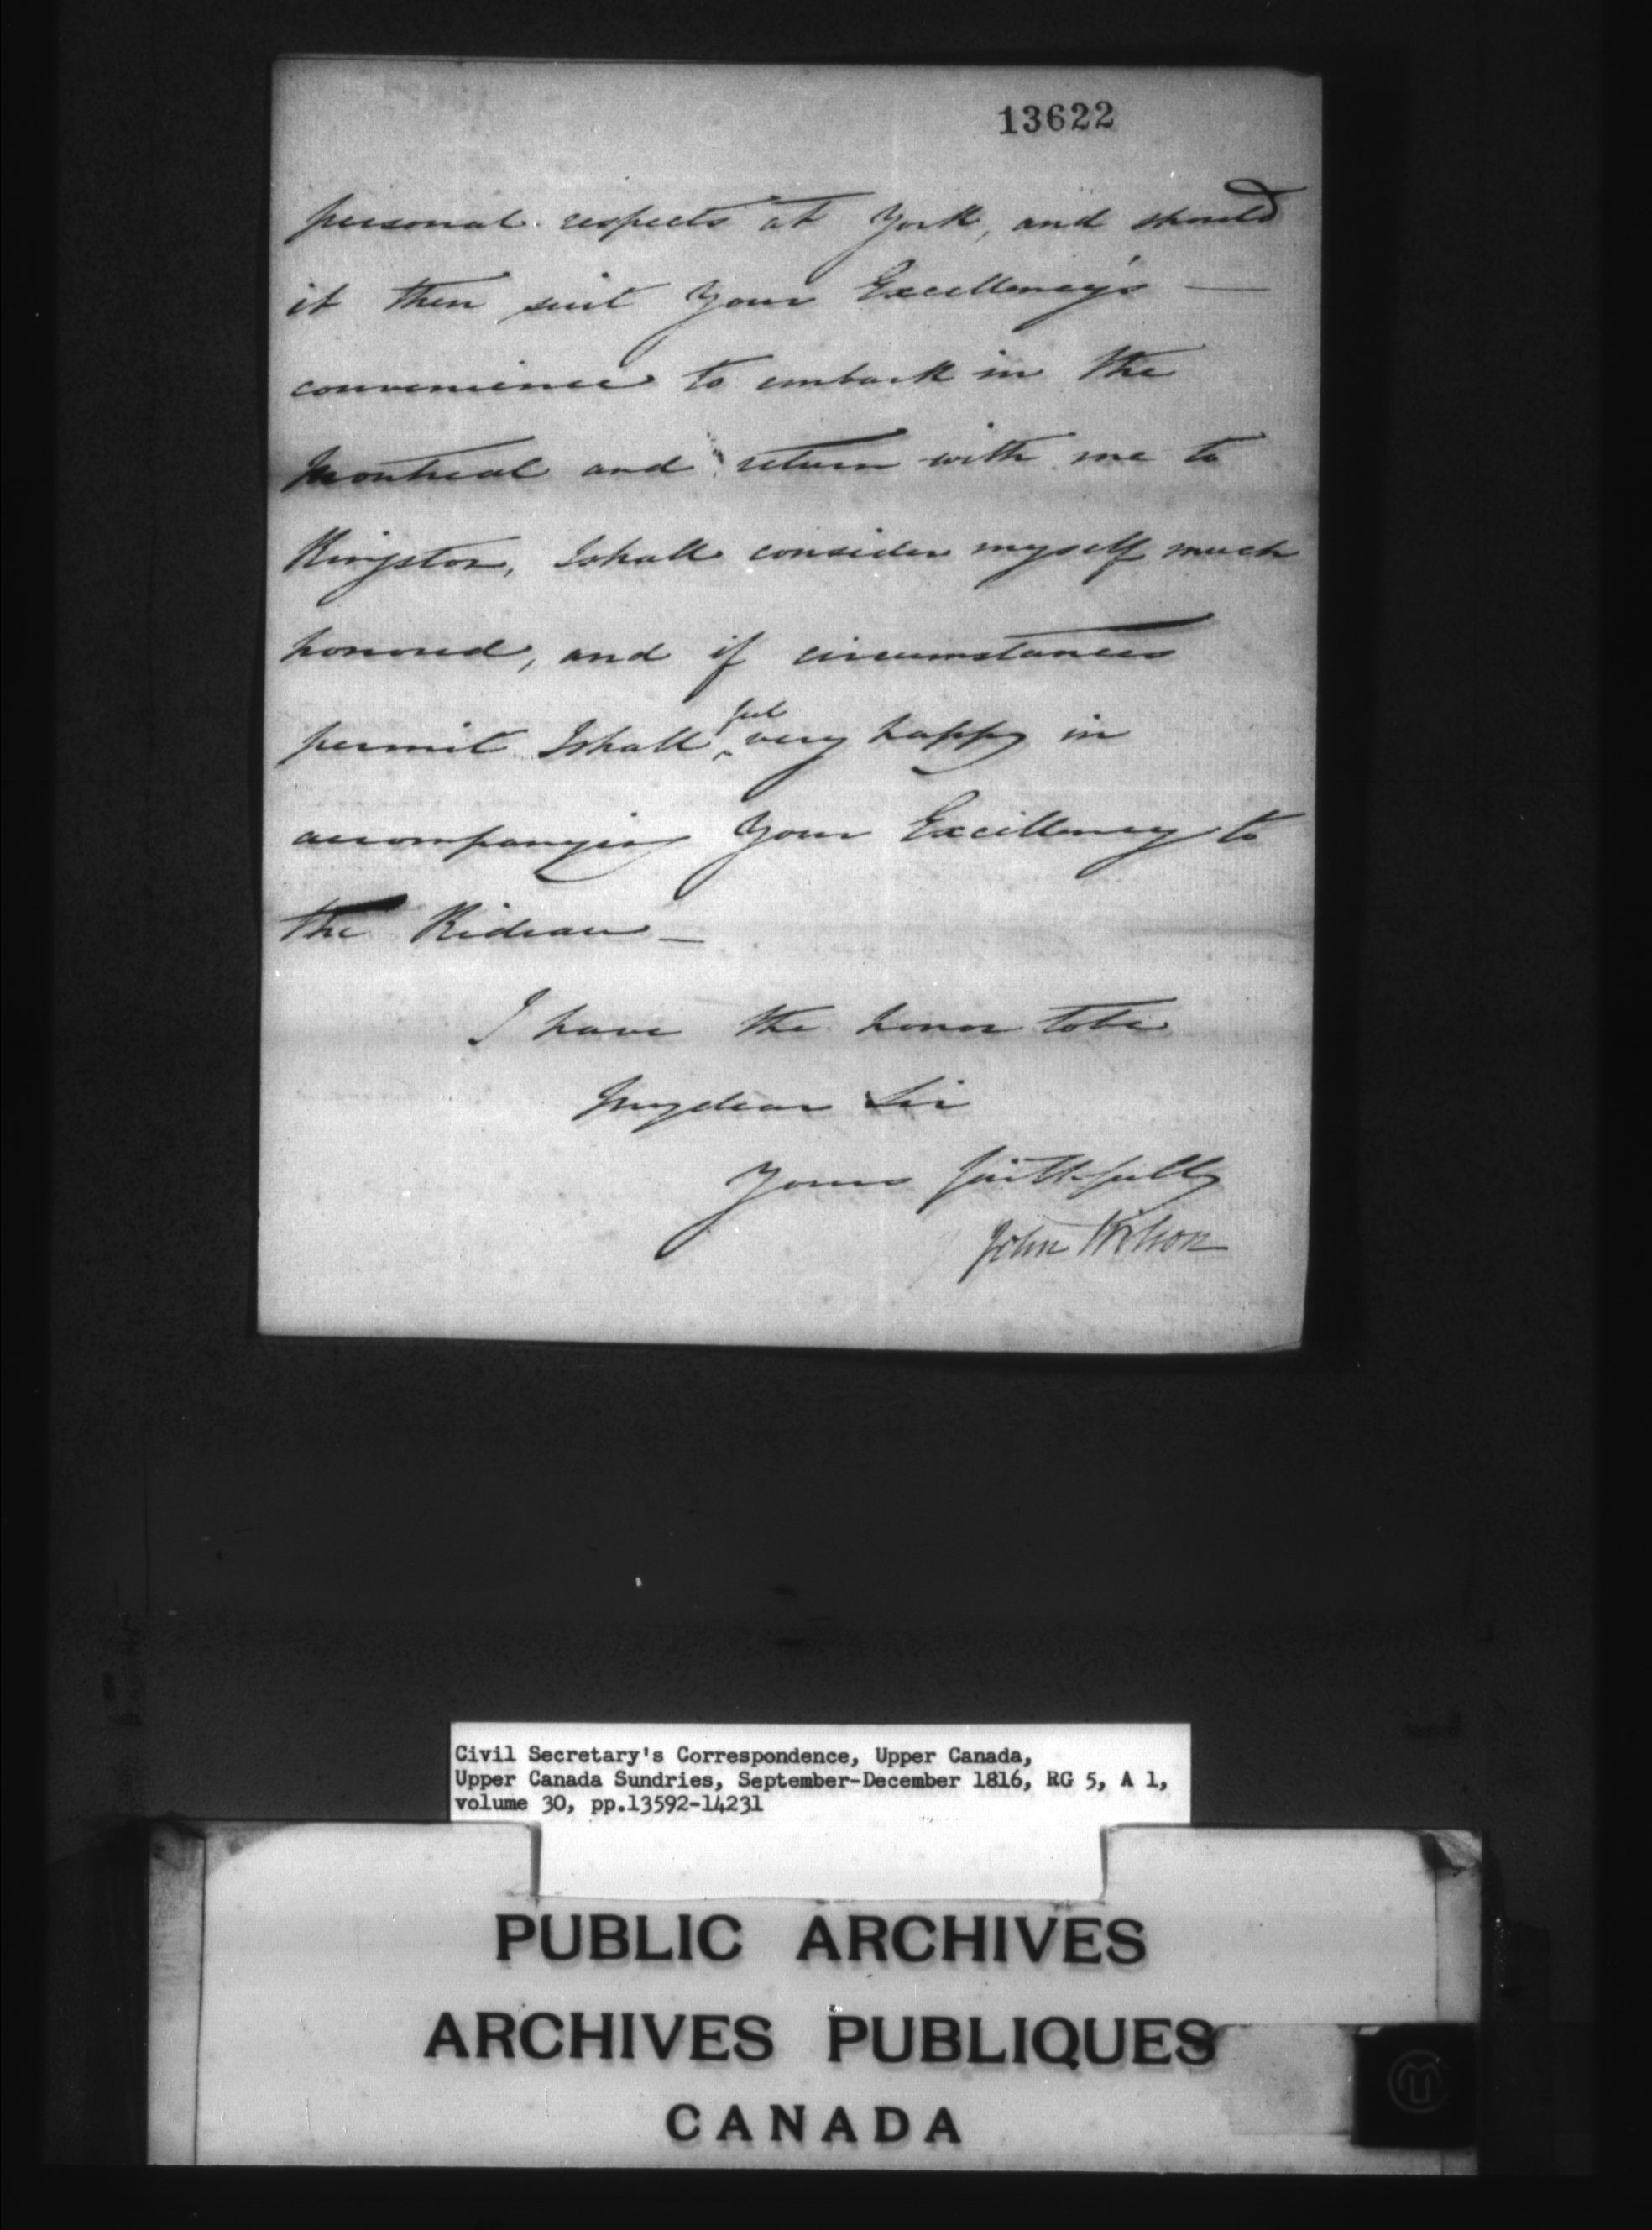 13622
personal respects at York, and should
it then suit Your Excellency's —
convenience to embark in the
Montreal and return with me to
Kingston, I shall consider myself much
honored, and if circumstances
feel
permit I shall ^ very happy in
accompanying Your Excellency to
the Rideau —
I have the honor to be
My dear Sir
Yours faithfully
John Wilson
Civil Secretary's Correspondence, Upper Canada,
Upper Canada Sundries, September-December 1816, RG 5, A 1,
volume 30, pp.13592-14231
PUBLIC ARCHIVES
ARCHIVES PUBLIQUES
CANADA